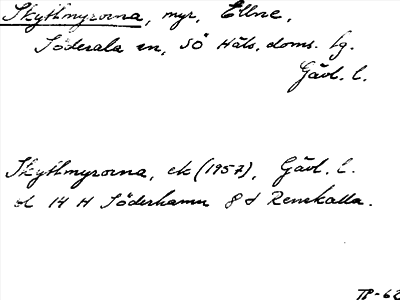 Skyttmyrorna, myr, Ellne,
Söderala sn, SÖ Häls. doms. fg.
Gävl. l.
Skyttmyrorna, ek (1957), Gävl. l.
bl 14 H Söderhamn 8 d Renskalla.
TP-62